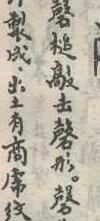 磬槌敲击磬形。磬
制成，出土有商虎纹